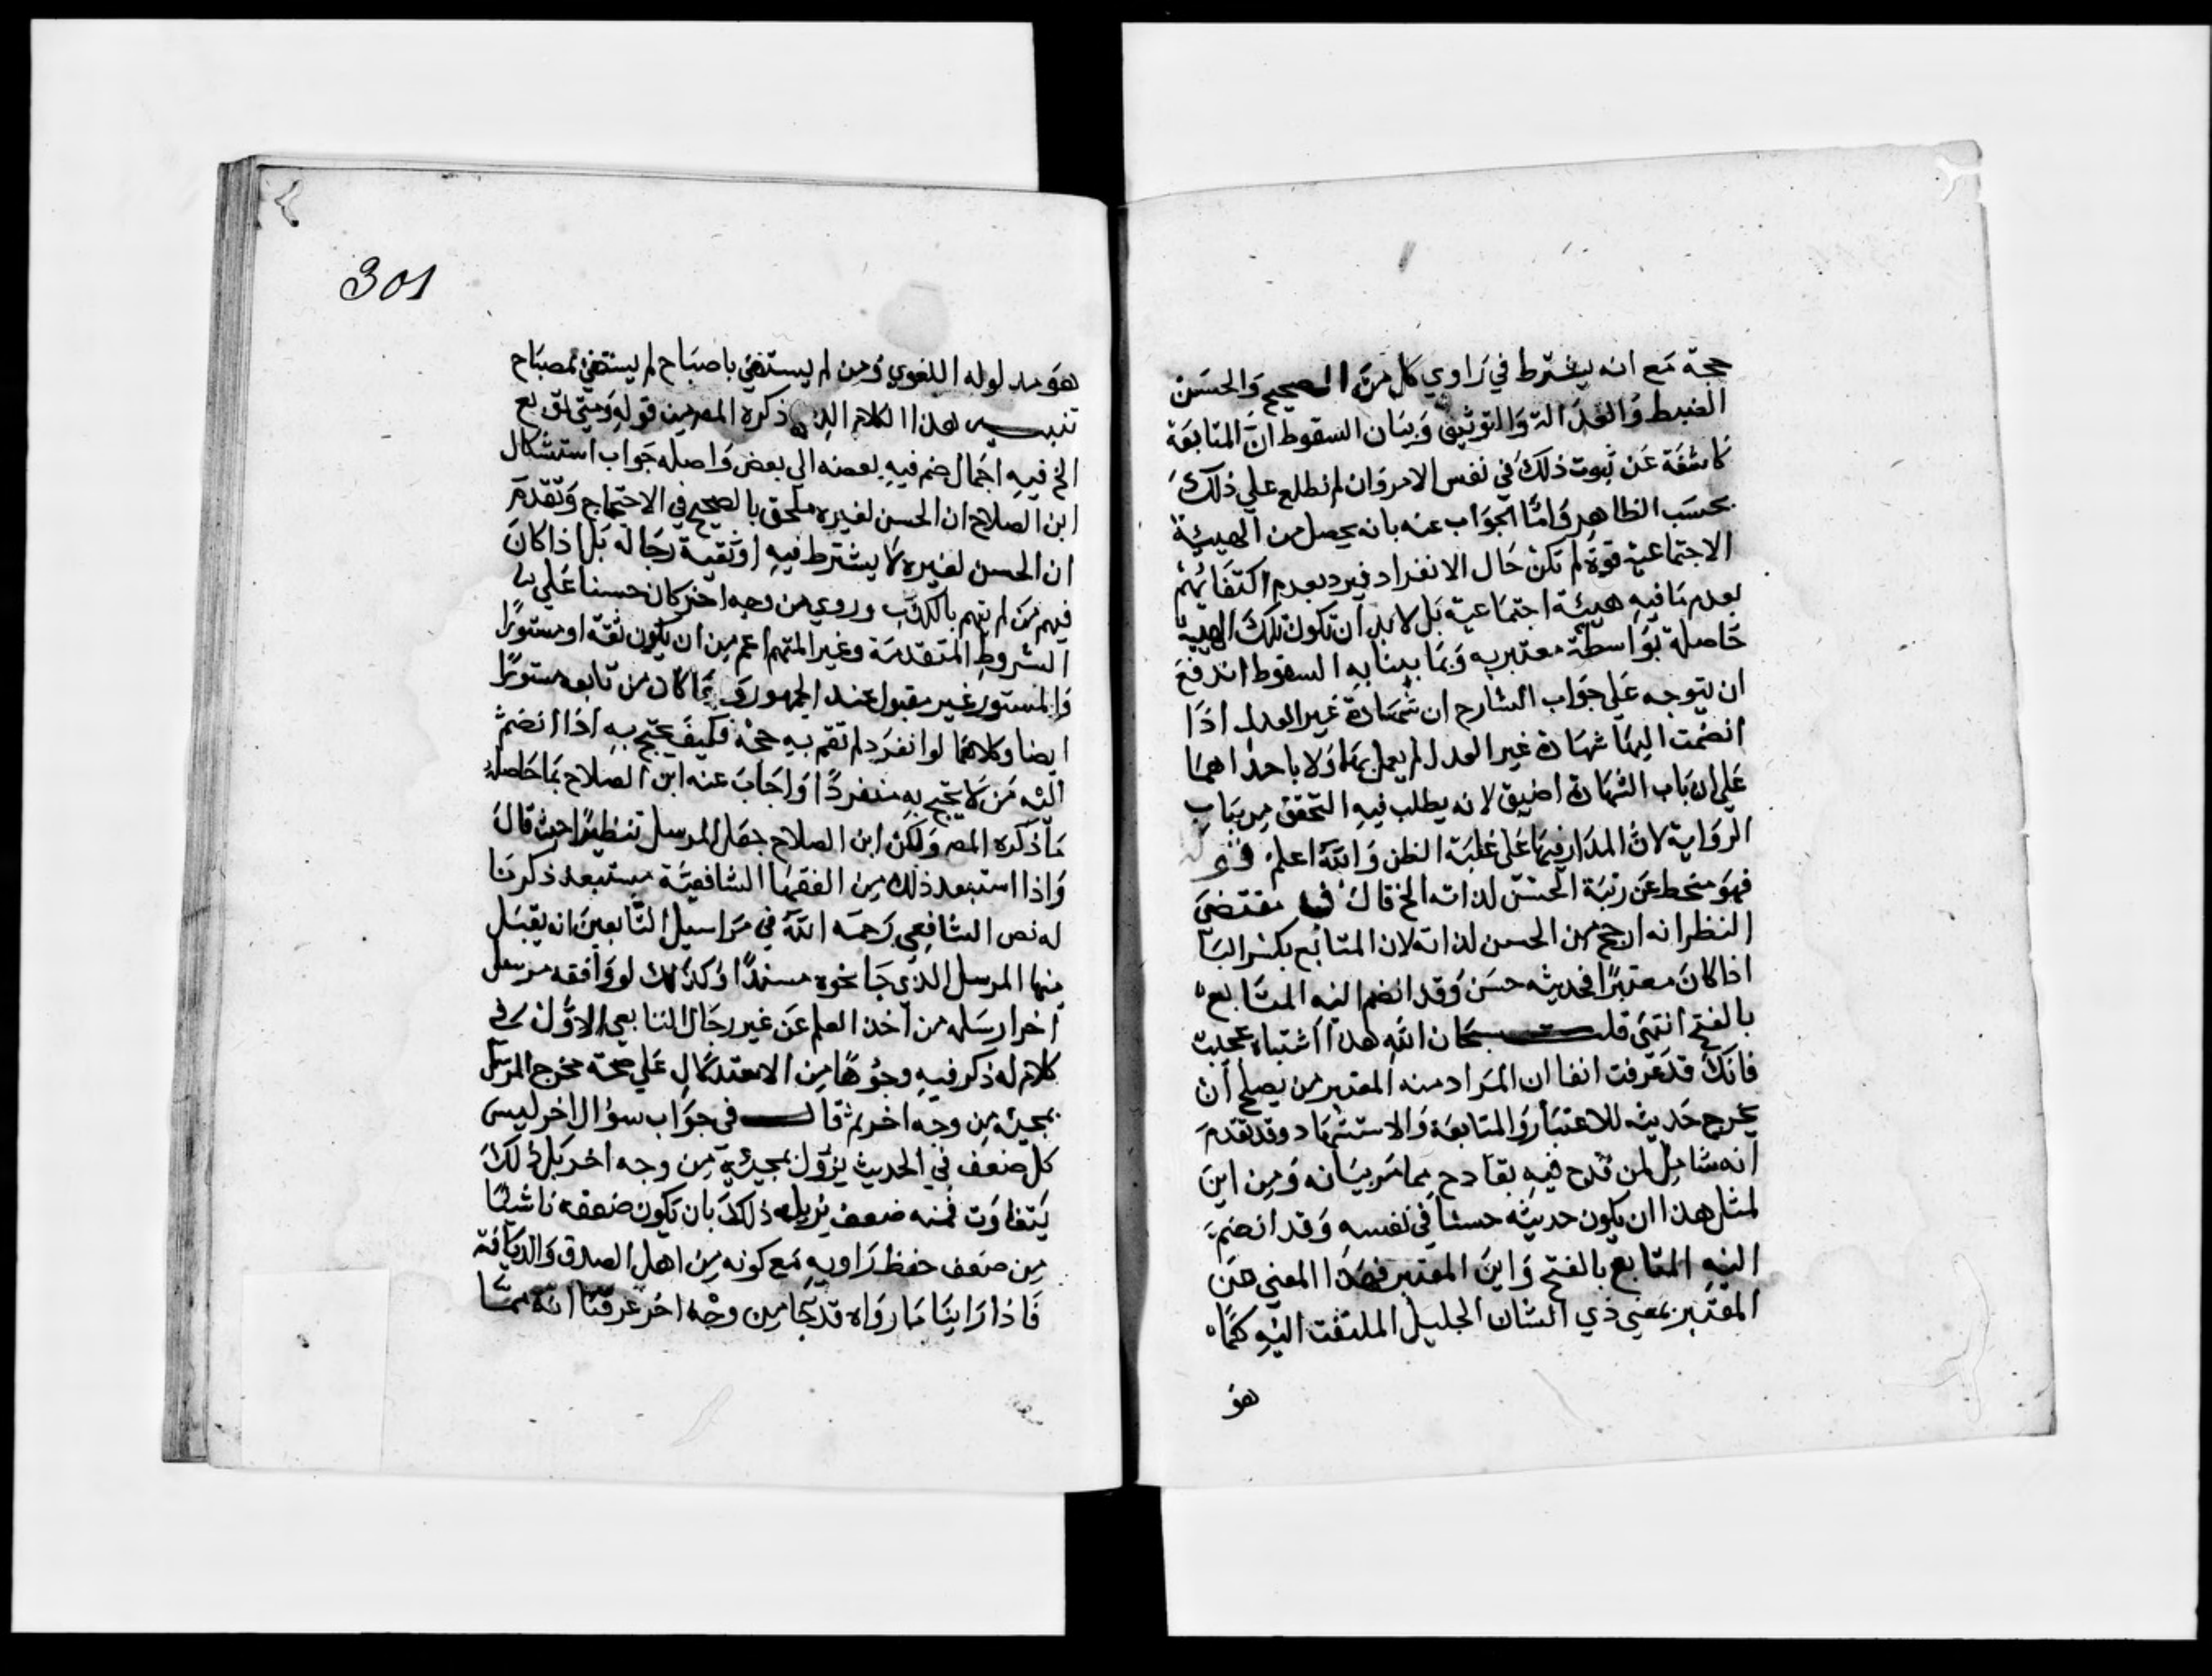 حجة مع انه يشترط في راوي كل من الصحيح والحسن
الضبط والعدالة والتوثيق وبيان السقوط ان المتابعة
كاشفة عن ثبوت ذلك في نفس الامر وان لم نطلع علي ذلك
بحسب الظاهر واما الجواب عنه بانه يحصل من الهيئة
الاجتماعية قوة لم تكن حال الانفراد فيرد بعدم اكتفائهم
بعدم ما فيه هيئة اجتماعية بل لابد ان تكون تلك الهيئة
حاصلة بواسطة معتبر به وبما بينا به السقوط اندفع
ان يتوجه علي جواب الشارح ان شهادة غير العدل اذا
انضمت اليها شهادة غير العدل لم يعمل بهما ولا باحداهما
علي ان باب الشهادة اضيق لانه يطلب فيه التحقق من باب
الرواية لان المدار فيها علي غلبة الظن والله اعلم
فهو منحط عن رتبة الحسن لذاته الخ قال مقتضي
النظر انه ارجح من الحسن لذاته لان المتابع بكسر البا
اذا كان معتبرا فحديثه حسن وقد انضم اليه المتابع
بالفتح انتهي قلت سبحان الله هذا اشتباه عجيب
فانك قد عرفت انفا ان المراد منه المعتبر من يصلح ان
يخرج حديثه للاعتبار والمتابعة والاستشهاد وقد تقدم
انه شامل لمن قدح فيه بقادح مما مر بيانه ومن اين
لمثل هذا ان يكون حديثه حسنا في نفسه وقد انضم
اليه المتابع بالفتح واين المعتبر فهذا المعني عن
المعتبر بمعني ذي الشان الجليل الملتفت اليه كما
هو
301
هو مدلوله اللغوي ومن لم يستضي باصباح لم يستضي بمصباح
تنبيه هذا الكلام الذي ذكره المص من قوله ومتي توبع
الخ فيه اجمال ضم فيه بعضه الي بعض واصله جواب استشكال
ابن الصلاح ان الحسن لغيره ملحق بالصحيح في الاحتجاج وتقدم
ان الحسن لغيره لا يشترط فيه اوثقية رجاله بل اذا كان
فيهم من لم يتهم بالكذب وروي من وجه اخر كان حسنا علي
الشروط المتقدمة وغير المتهم اعم من ان يكون ثقة او مستورا
والمستور غير مقبول عند الجمهور وربما كان من تابعه مستورا
ايضا وكلاهما لو انفرد لم تقم به حجة فكيف يحتج به اذا انضم
اليه من لا يحتج به منفردا واجاب عنه ابن الصلاح بما حاصله
ما ذكره المص ولكن ابن الصلاح جعل المرسل تنظيرا حيث قال
واذا استبعد ذلك من الفقها الشافعية مستبعد ذكرنا
له نص الشافعي رحمه الله في مراسيل التابعين انه يقبل
منها المرسل الذي جا نحوه مسندا وكذلك لو وافقه مرسل
اخر ارسله من اخذ العلم عن غير رجال التابعي الاول في
كلام له ذكر فيه وجوها من الاستدلال علي صحة مخرج المرسل
بمجيئه من وجه اخر ثم قال في جواب سؤال اخر ليس
كل ضعف في الحديث يزول بمجيئه من وجه اخر بل ذلك
يتفاوت فمنه ضعف يزيله ذلك بان يكون ضعفه ناشئا
من ضعف حفظ راويه مع كونه من اهل الصدق والديانة
فاذا راينا ما رواه قد جا من وجه اخر عرفنا انه مما